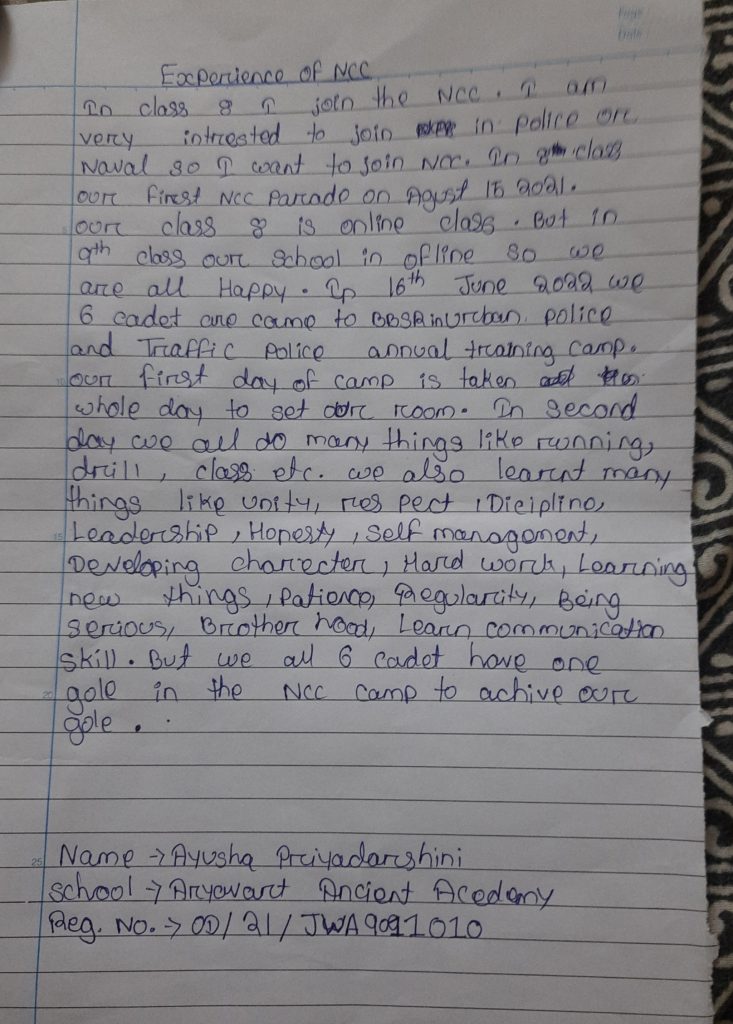 Experience of NCC
In class 8 I join the NCC. I am
very intrested to join in police or
Naval so I want to join NCC. In class
our first NCC Parade on Agust 15 2021.
our class 8 is online class. But in
9th class our school in ofline so we
are all Happy. In 16th June 2022 we
6 cadet are came to BBSR in Urban police
and Traffic police annual training camp.
our first day of camp is taken
whole day to set our room. In second
day we all do many things like running,
drill, class etc. we also learnt many
things like unity, res pect, Dicipline,
Leadership, Honesty, Self management,
Developing charecter, Hard work, Learning
new things, Patience, Regularity, Being
serious, Brother hood, Learn communication
skill. But we all 6 cadet have one
gole in the NCC camp to achive our
gole.
Name → Ayusha Priyadarshini
school → Aryavart Ancient Acedemy
Reg. No. → OD/21/JWA9011010